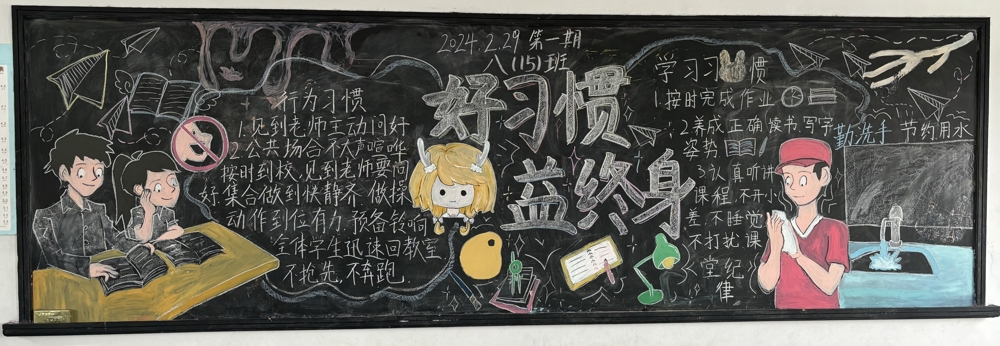 2024.2.29 第一期
八(15)班
好习惯
益终身
行为习惯
1.见到老师主动问好
2.公共场合不大声喧哗
按时到校,见到老师要问
好,集合做到快静齐,做操
动作到位有力.预备铃响
全体学生迅速回教室
不抢先,不奔跑
学习习惯
1.按时完成作业
2.养成正确读书,写字
姿势
3.认真听讲
课程,不开小
差,不睡觉
不打扰课
堂纪
律
勤洗手 节约用水